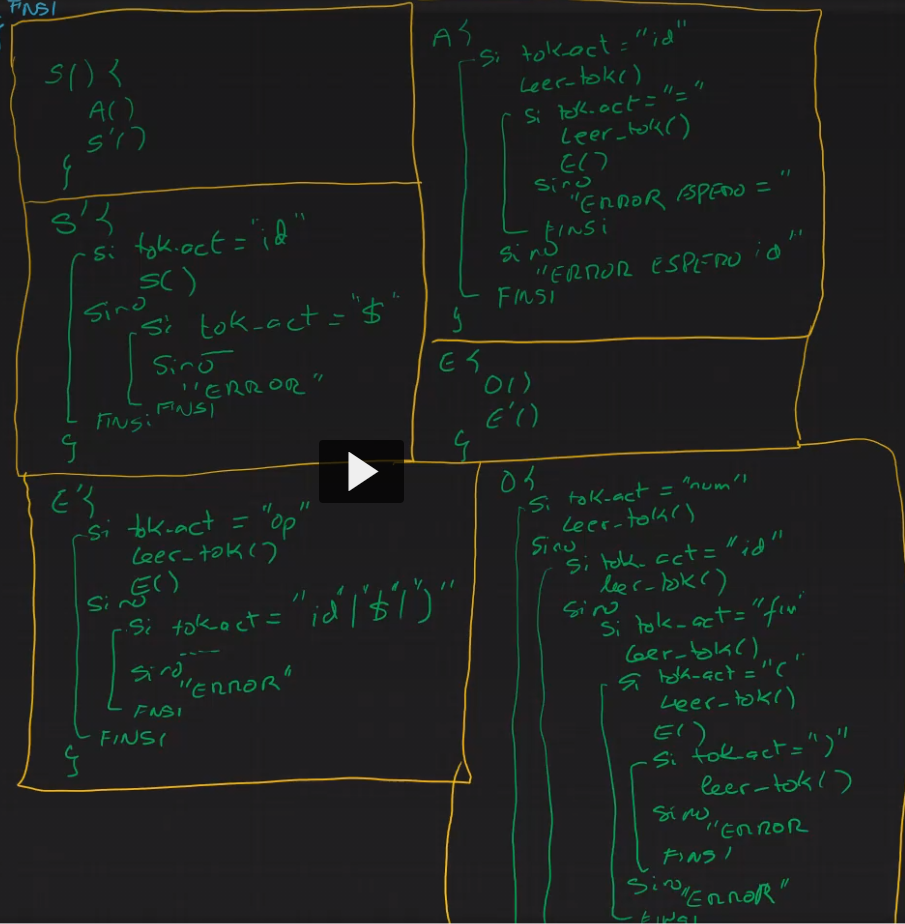 FINSI
S() {
A()
S'()
}
S' {
Si tok-act = "id"
S()
Sino
Si tok_act = "$"
Sino
"ERROR"
FINSI
FINSI
}
A {
Si tok-act = "id"
Leer-tok()
Si tok-act = "="
Leer_tok()
E()
Sino
"ERROR ESPERO = "
FINSI
Sino
"ERROR ESPERO id"
FINSI
}
E {
O()
E'()
}
E' {
Si tok-act = "op"
Leer-tok()
E()
Sino
Si tok-act = "id"|"$"|")"
----
Sino
"ERROR"
FINSI
FINSI
}
O {
Si tok-act = "num"
Leer-tok()
Sino
Si tok-act = "id"
leer-tok()
Sino
Si tok-act = "fun"
Leer-tok()
Si tok-act = "("
Leer-tok()
E()
Si tok-act = ")"
leer-tok()
Sino
"ERROR
FINSI
Sino "ERROR"
FINSI